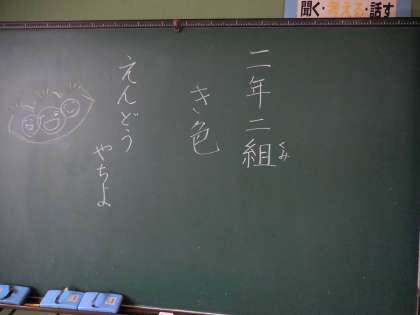 聞く・考える・話す
二年二組
くみ
き色
えんどう
やちよ